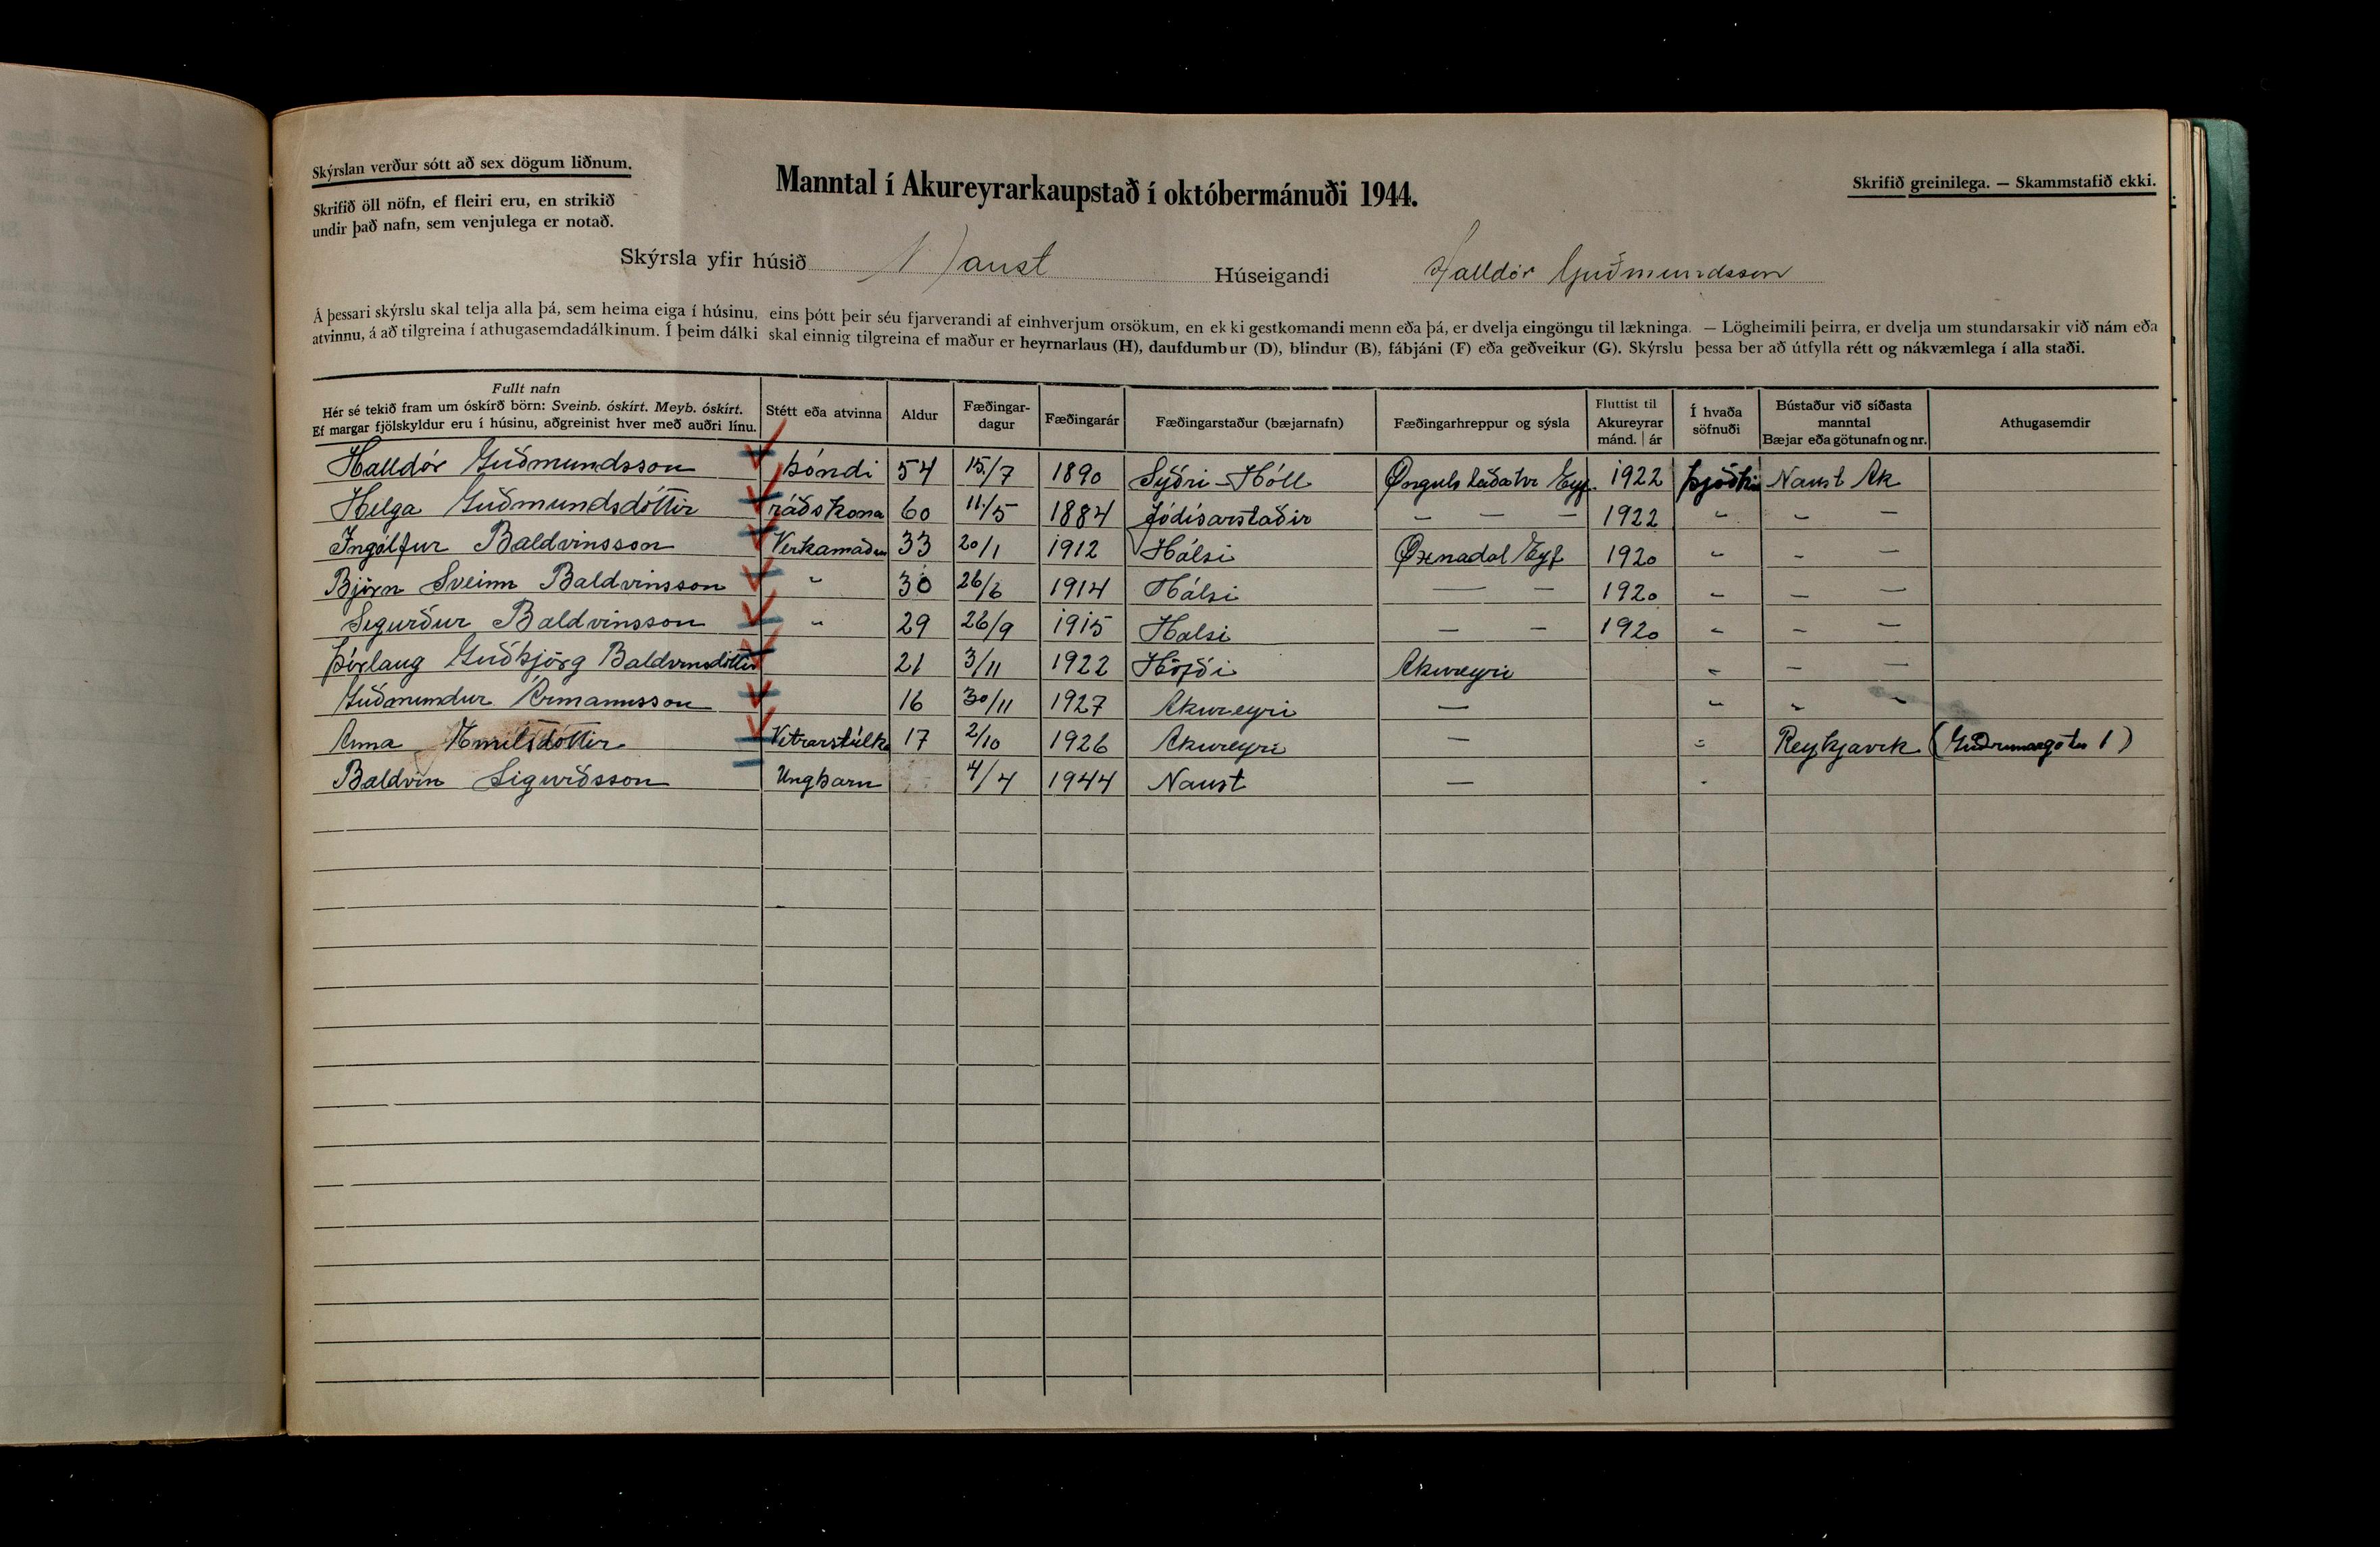 Skýrslan verður sótt að sex dögum liðnum.
Skrifið öll nöfn, ef fleiri eru, en strikið
undir það nafn, sem venjulega er notað.
Manntal í Akureyrarkaupstað í októbermánuði 1944.
Skrifið greinilega. — Skammstafið ekki.
Skýrsla yfir húsið Naust Húseigandi Halldór Guðmundsson
Á þessari skýrslu skal telja alla þá, sem heima eiga í húsinu, eins þótt þeir séu fjarverandi af einhverjum orsökum, en ekki gestkomandi menn eða þá, er dvelja eingöngu til lækninga. — Lögheimili þeirra, er dvelja um stundarsakir við nám eða
atvinnu, á að tilgreina í athugasemdadálkinum. Í þeim dálki skal einnig tilgreina ef maður er heyrnarlaus (H), daufdumbur (D), blindur (B), fábjáni (F) eða geðveikur (G). Skýrslu þessa ber að útfylla rétt og nákvæmlega í alla staði.
Fullt nafn
Hér sé tekið fram um óskírð börn: Sveinb. óskírt. Meyb. óskírt.
Ef margar fjölskyldur eru í húsinu, aðgreinist hver með auðri línu.
Stétt eða atvinna
Aldur
Fæðingar-
dagur
Fæðingarár
Fæðingarstaður (bæjarnafn)
Fæðingarhreppur og sýsla
Fluttist til
Akureyrar
mánd. | ár
Í hvaða
söfnuði
Bústaður við síðasta
manntal
Bæjar eða götunafn og nr.
Athugasemdir
Halldór Guðmundsson bóndi 54 15./7 1890 Syðri-Hóll Önguls Eyf. 1922 Naust Ak
Helga Guðmundsdóttir ráðskona 60 11./5 1884 Jódísarstaðir — — — 1922 " " —
Ingólfur Baldvinsson Verkamaður 33 20/1 1912 Hálsi Øxnadal Eyf 1920 " " —
Björn Sveinn Baldvinsson " 30 26/6 1914 Hálsi — — 1920 " — —
Sigurður Baldvinsson " 29 26/9 1915 Halsi — — 1920 " — —
Þórlaug Guðbjörg Baldvinsdóttir 21 3/11 1922 Höfði Akureyri " — —
Guðmundur Ármannsson 16 30/11 1927 Akureyri — " " "
Anna Emilsdóttir Vetrarstúlka 17 2/10 1926 Akureyri — " Reykjavík (Guðrunargötu 1)
Baldvin Sigurðsson Ungbarn 4/4 1944 Naust — "